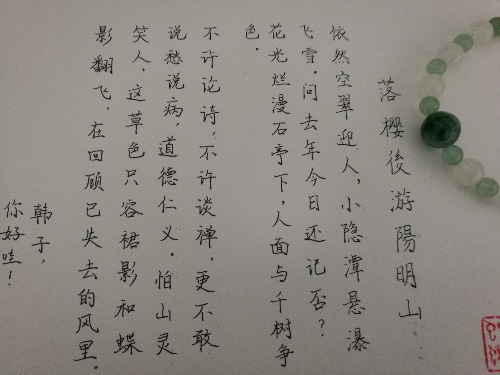 落樱後游陽明山
依然空翠迎人，小隐潭悬瀑
飞雪。问去年今日还记否？
花光烂漫石亭下，人面与千树争
色。
不许论诗，不许谈禅，更不敢
说愁说病，道德仁义。怕山灵
笑人。这草色只容裙影和蝶
影翻飞，在回顾已失去的风里。
韩子，
你好哇！